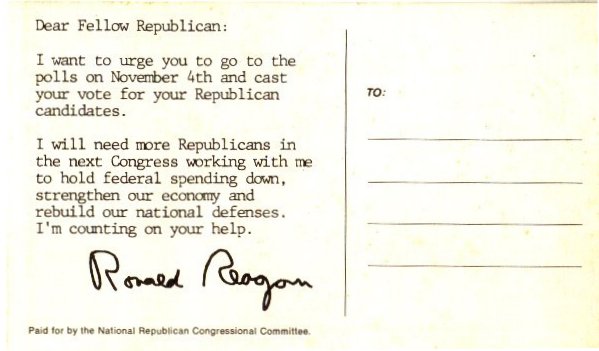 Dear Fellow Republican:
I want to urge you to go to the
polls on November 4th and cast
your vote for your Republican
candidates.
I will need more Republicans in
the next Congress working with me
to hold federal spending down,
strengthen our economy and
rebuild our national defenses.
I'm counting on your help.
Ronald Reagan
Paid for by the National Republican Congressional Committee.
TO: